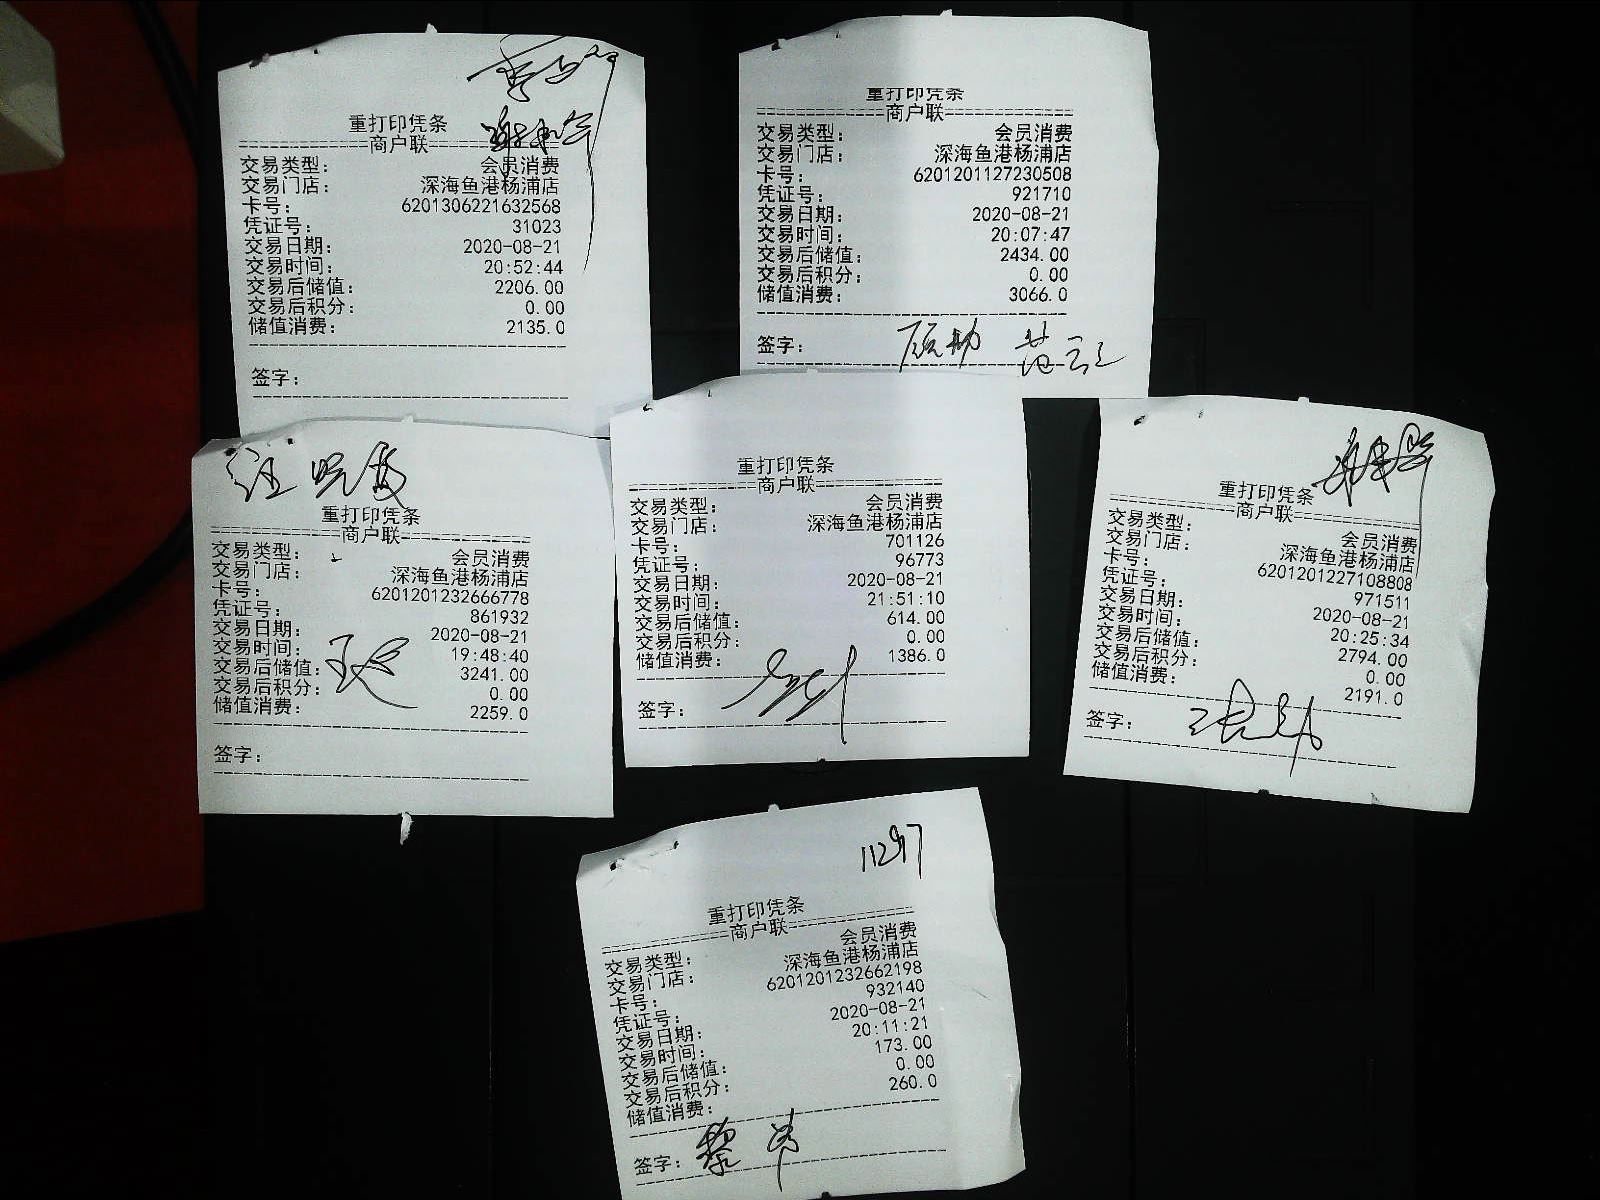 重打印凭条
商户联
交易类型： 会员消费
交易门店： 深海鱼港杨浦店
卡号： 6201306221632568
凭证号： 31023
交易日期： 2020-08-21
交易时间： 20:52:44
交易后储值： 2206.00
交易后积分： 0.00
储值消费： 2135.0
签字：
重打印凭条
商户联
交易类型： 会员消费
交易门店： 深海鱼港杨浦店
卡号： 6201201127230508
凭证号： 921710
交易日期： 2020-08-21
交易时间： 20:07:47
交易后储值： 2434.00
交易后积分： 0.00
储值消费： 3066.0
签字：
重打印凭条
商户联
交易类型： 会员消费
交易门店： 深海鱼港杨浦店
卡号： 6201201232666778
凭证号： 861932
交易日期： 2020-08-21
交易时间： 19:48:40
交易后储值： 3241.00
交易后积分： 0.00
储值消费： 2259.0
签字：
重打印凭条
商户联
交易类型： 会员消费
交易门店： 深海鱼港杨浦店
卡号： 701126
凭证号： 96773
交易日期： 2020-08-21
交易时间： 21:51:10
交易后储值： 614.00
交易后积分： 0.00
储值消费： 1386.0
签字：
重打印凭条
商户联
交易类型： 会员消费
交易门店： 深海鱼港杨浦店
卡号： 6201201227108808
凭证号： 971511
交易日期： 2020-08-21
交易时间： 20:25:34
交易后储值： 2794.00
交易后积分： 0.00
储值消费： 2191.0
签字：
重打印凭条
商户联
交易类型： 会员消费
交易门店： 深海鱼港杨浦店
卡号： 6201201232662198
凭证号： 932140
交易日期： 2020-08-21
交易时间： 20:11:21
交易后储值： 173.00
交易后积分： 0.00
储值消费： 260.0
签字：